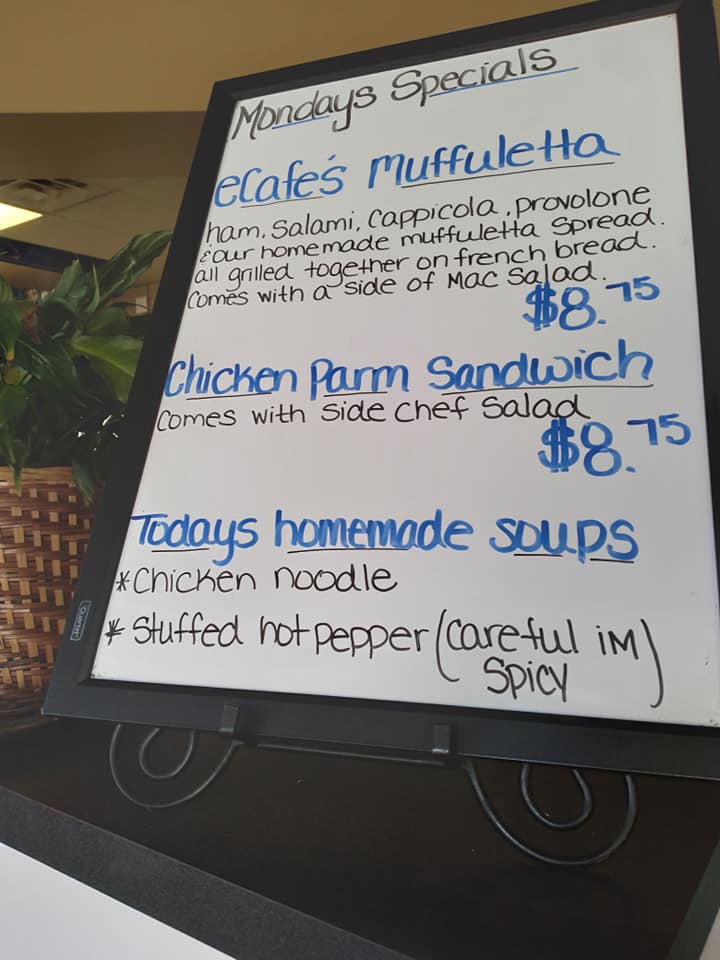 Mondays Specials
eCafe's Muffuletta
ham, Salami, Cappicola, provolone
& our homemade muffuletta spread.
all grilled together on french bread.
Comes with a side of Mac Salad.
$8.75
Chicken Parm Sandwich
Comes with side chef Salad
$8.75
Todays homemade soups
* Chicken noodle
* Stuffed hot pepper (careful im
Spicy)
Quartet